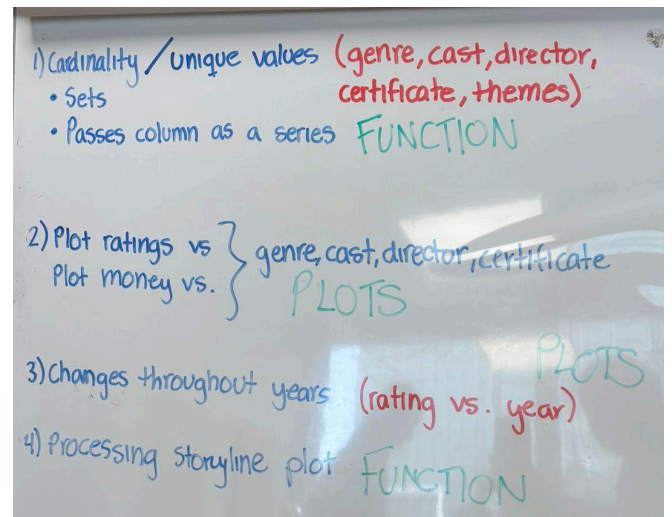 1) Cardinality / unique values (genre, cast, director,
• Sets certificate, themes)
• Passes column as a series FUNCTION
2) Plot ratings vs } genre, cast, director, certificate
Plot money vs. PLOTS
PLOTS
3) Changes throughout years (rating vs. year)
4) Processing storyline plot FUNCTION